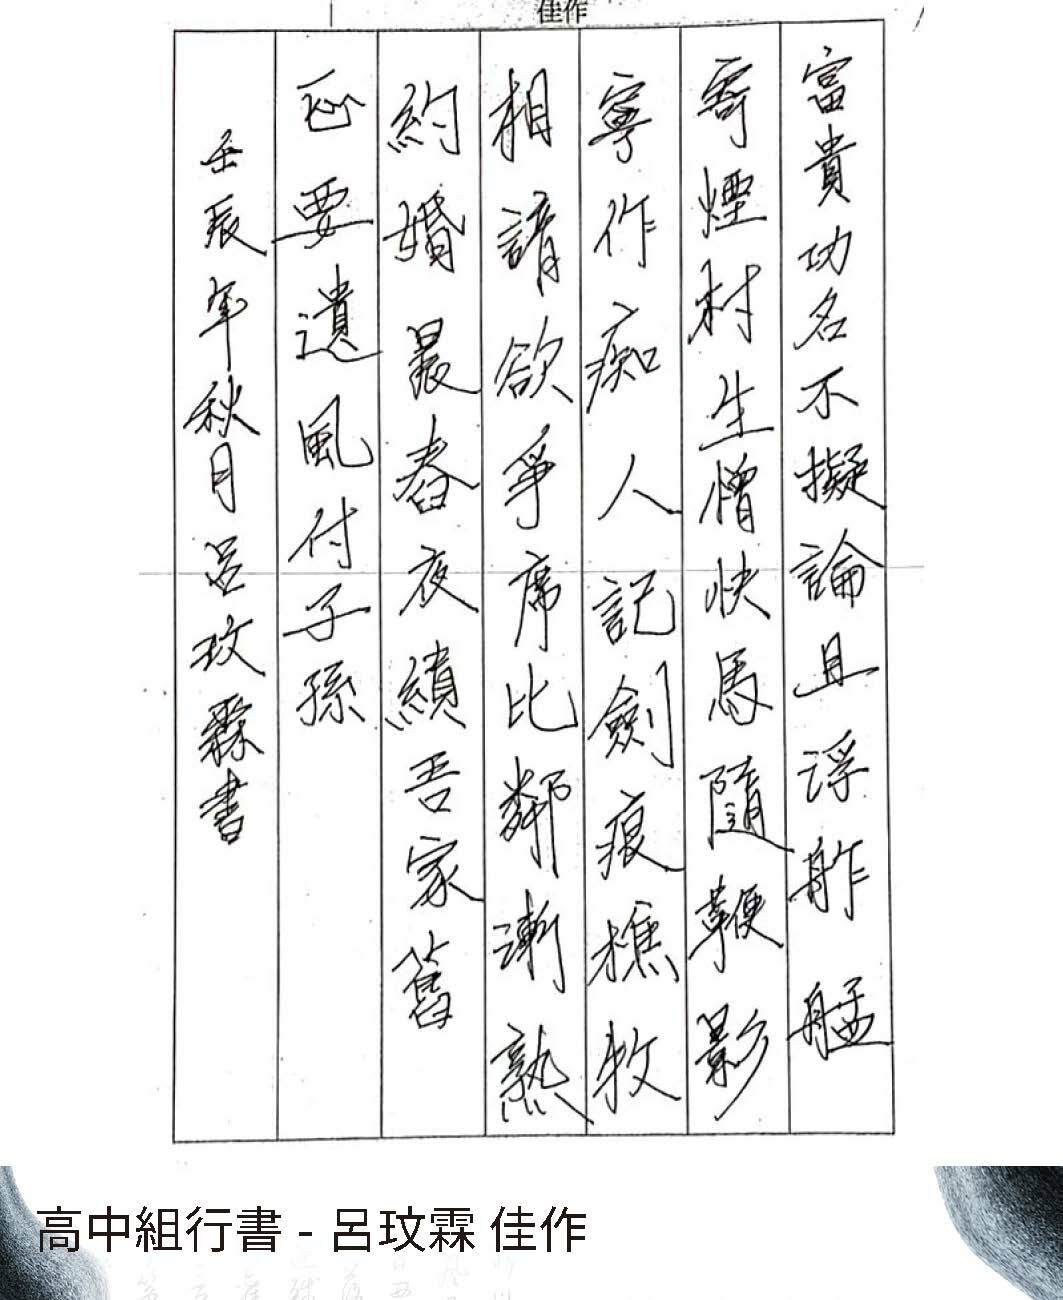 佳作
富貴功名不擬論且浮舴艋
寄煙村生憎快馬隨鞭影
寧作痴人記劍痕樵牧
相請欲爭席比鄰漸熟
約婚晨舂夜績吾家舊
正要遺風付子孫
壬辰年秋月呂玟霖書
高中組行書 - 呂玟霖 佳作